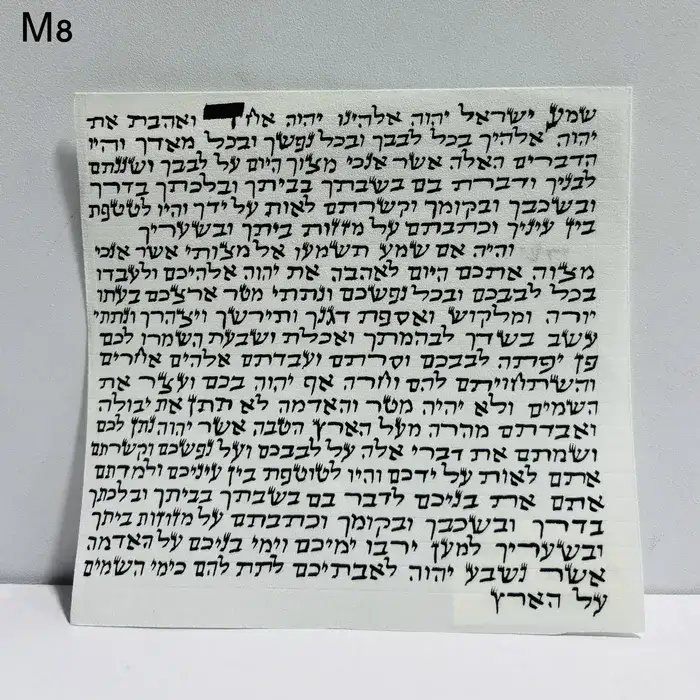 M8
שמע ישראל יהוה אלהינו יהוה אחד ואהבת את
יהוה אלהיך בכל לבבך ובכל נפשך ובכל מאדך והיו
הדברים האלה אשר אנכי מצוך היום על לבבך ושננתם
לבניך ודברת בם בשבתך בביתך ובלכתך בדרך
ובשכבך ובקומך וקשרתם לאות על ידך והיו לטטפת
בין עיניך וכתבתם על מזזות ביתך ובשעריך
והיה אם שמע תשמעו אל מצותי אשר אנכי
מצוה אתכם היום לאהבה את יהוה אלהיכם ולעבדו
בכל לבבכם ובכל נפשכם ונתתי מטר ארצכם בעתו
יורה ומלקוש ואספת דגנך ותירשך ויצהרך ונתתי
עשב בשדך לבהמתך ואכלת ושבעת השמרו לכם
פן יפתה לבבכם וסרתם ועבדתם אלהים אחרים
והשתחויתם להם וחרה אף יהוה בכם ועצר את
השמים ולא יהיה מטר והאדמה לא תתן את יבולה
ואבדתם מהרה מעל הארץ הטבה אשר יהוה נתן לכם
ושמתם את דברי אלה על לבבכם ועל נפשכם וקשרתם
אתם לאות על ידכם והיו לטוטפת בין עיניכם ולמדתם
אתם את בניכם לדבר בם בשבתך בביתך ובלכתך
בדרך ובשכבך ובקומך וכתבתם על מזוזות ביתך
ובשעריך למען ירבו ימיכם וימי בניכם על האדמה
אשר נשבע יהוה לאבתיכם לתת להם כימי השמים
על הארץ